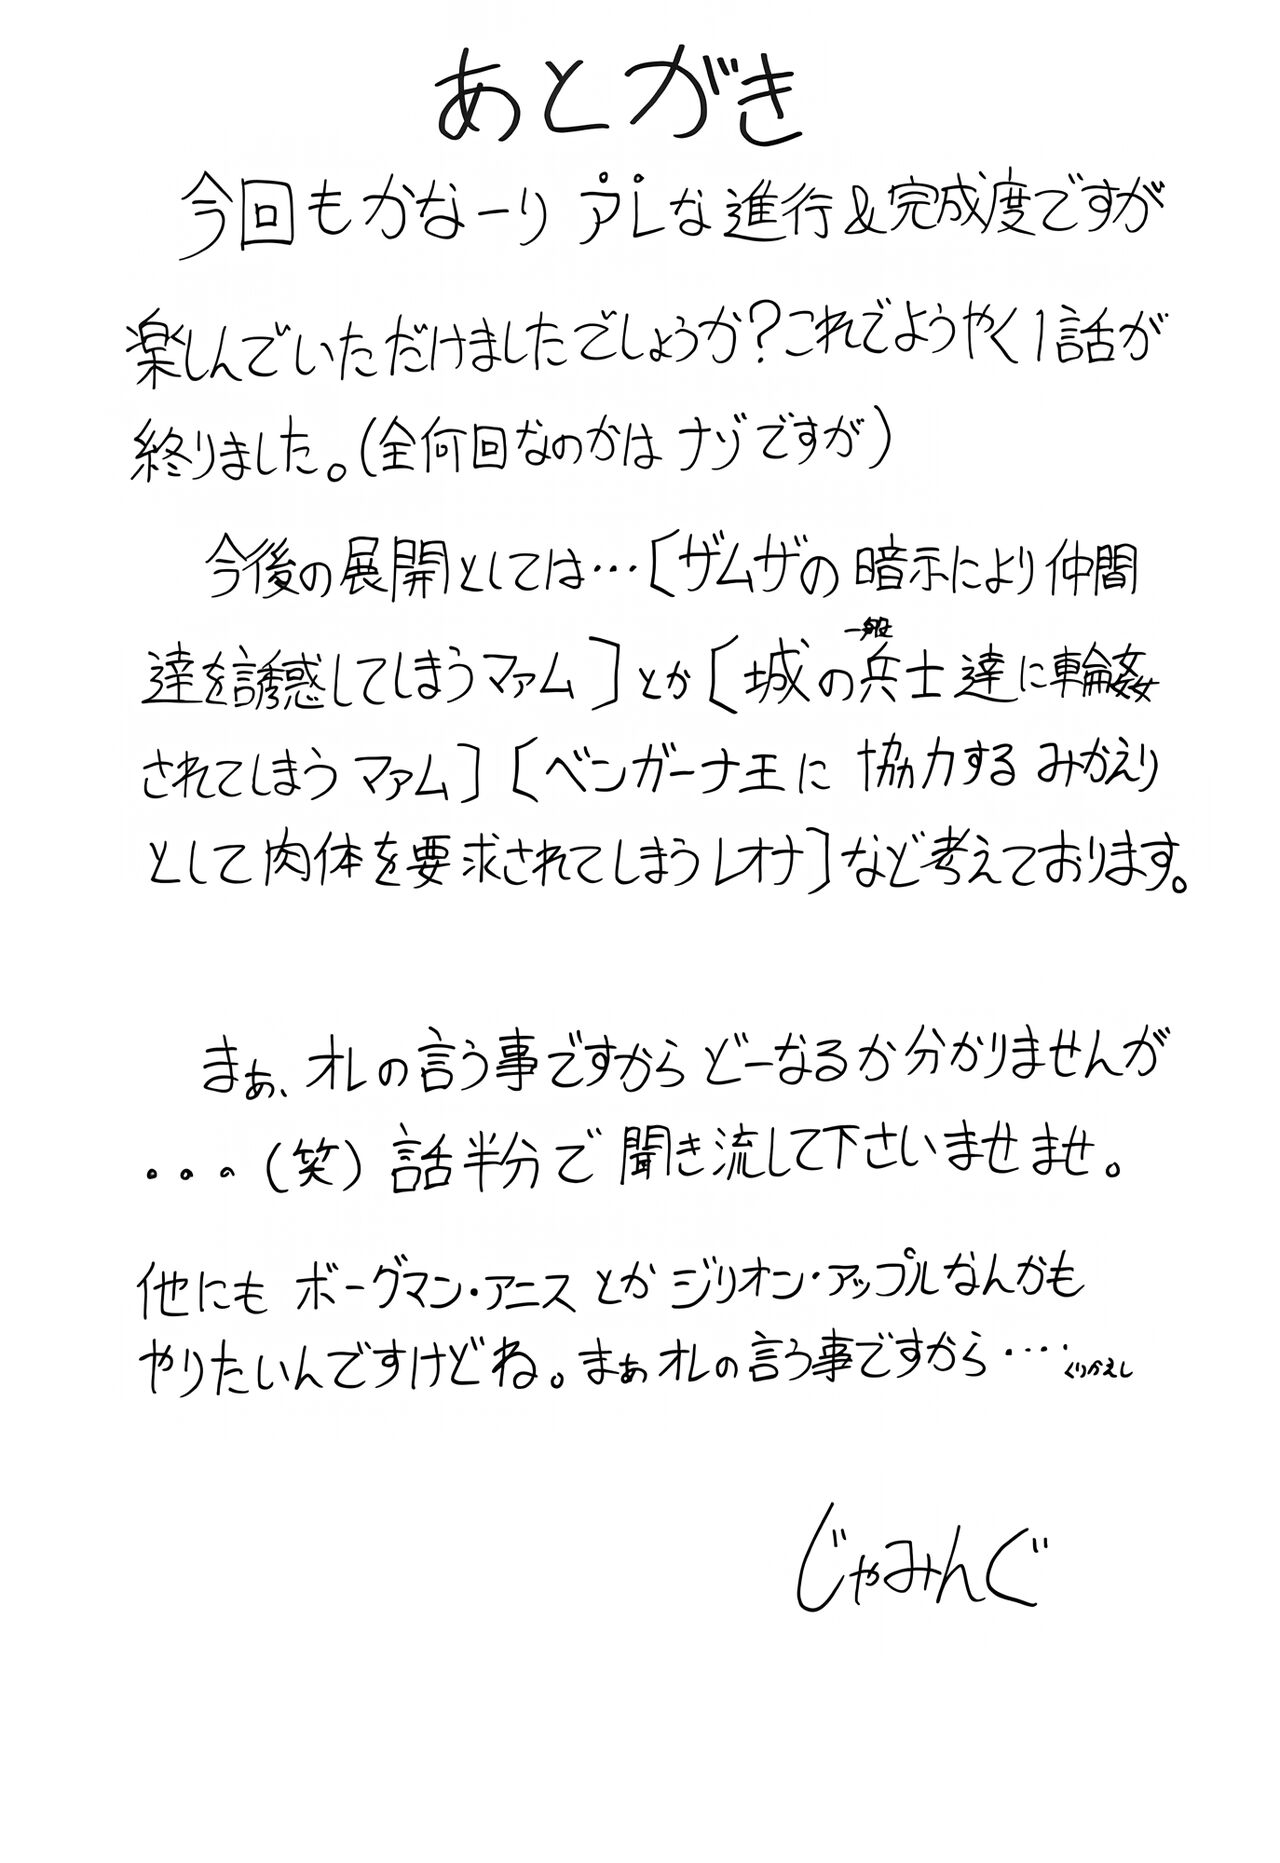 あとがき
今回もかなーり アレな進行&完成度ですが
楽しんでいただけましたでしょうか?これでようやく1話が
終りました。(全何回なのかは ナゾですが)
今後の展開としては…[ザムザの 暗示により 仲間
達を誘惑してしまう マァム]とか[城の一般兵士達に輪姦
されてしまう マァム][ベンガーナ王に 協力する みかえり
として 肉体を要求されてしまう レオナ]など考えております。
まぁ、オレの言う事ですから どーなるか分かりませんが
・・・(笑) 話半分で 聞き流して下さいませませ。
他にも ボーグマン・アニス とか ジリオン・アップルなんかも
やりたいんですけどね。まぁオレの言う事ですから…・くりかえし
じゃみんぐ